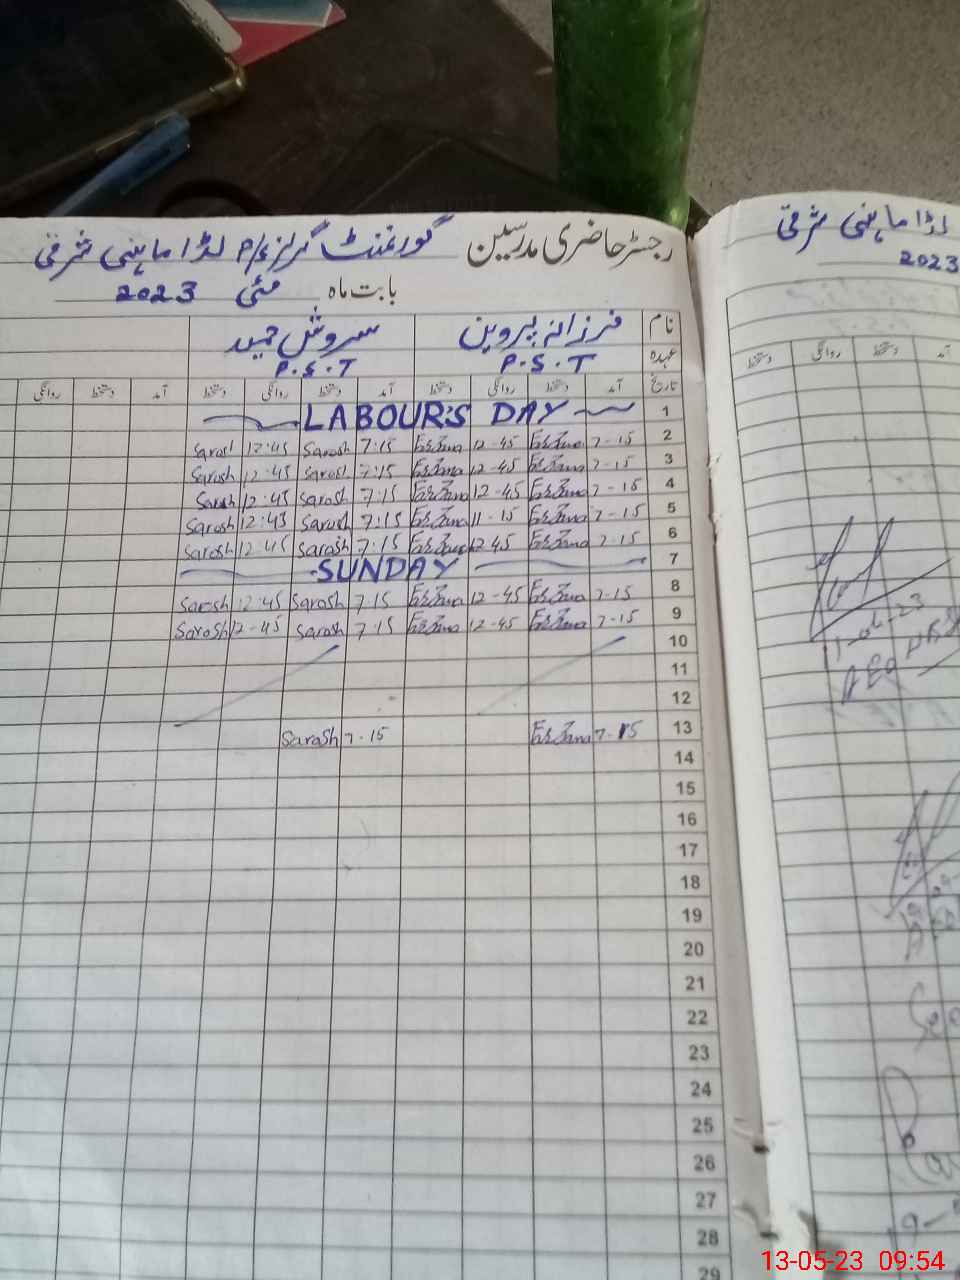 رجسٹر حاضری مدرسین گورنمنٹ گرلز لڈا ماہنی شرقی
بابت ماہ مئی 2023
نام فرزانہ پروین سروش حمید
عہدہ P.S.T P.S.T
تاریخ آمد دستخط روانگی دستخط آمد دستخط روانگی دستخط آمد دستخط روانگی
1 LABOUR'S DAY
2 7-15 Farzana 12-45 Farzana 7:15 Sarosh 12:45 Sarosh
3 7-15 Farzana 12-45 Farzana 7:15 Sarosh 12:45 Sarosh
4 7-15 Farzana 12-45 Farzana 7:15 Sarosh 12:45 Sarosh
5 7-15 Farzana 11-15 Farzana 7:15 Sarosh 12:45 Sarosh
6 7-15 Farzana 12-45 Farzana 7:15 Sarosh 12:45 Sarosh
7 SUNDAY
8 7-15 Farzana 12-45 Farzana 7:15 Sarosh 12:45 Sarosh
9 7-15 Farzana 12-45 Farzana 7:15 Sarosh 12-45 Sarosh
10
11
12
13 7-15 Farzana 7-15 Sarosh
14
15
16
17
18
19
20
21
22
23
24
25
26
27
28
29
لڈا ماہنی شرقی
2023
آمد دستخط روانگی دستخط
AEO
13-05-23 09:54